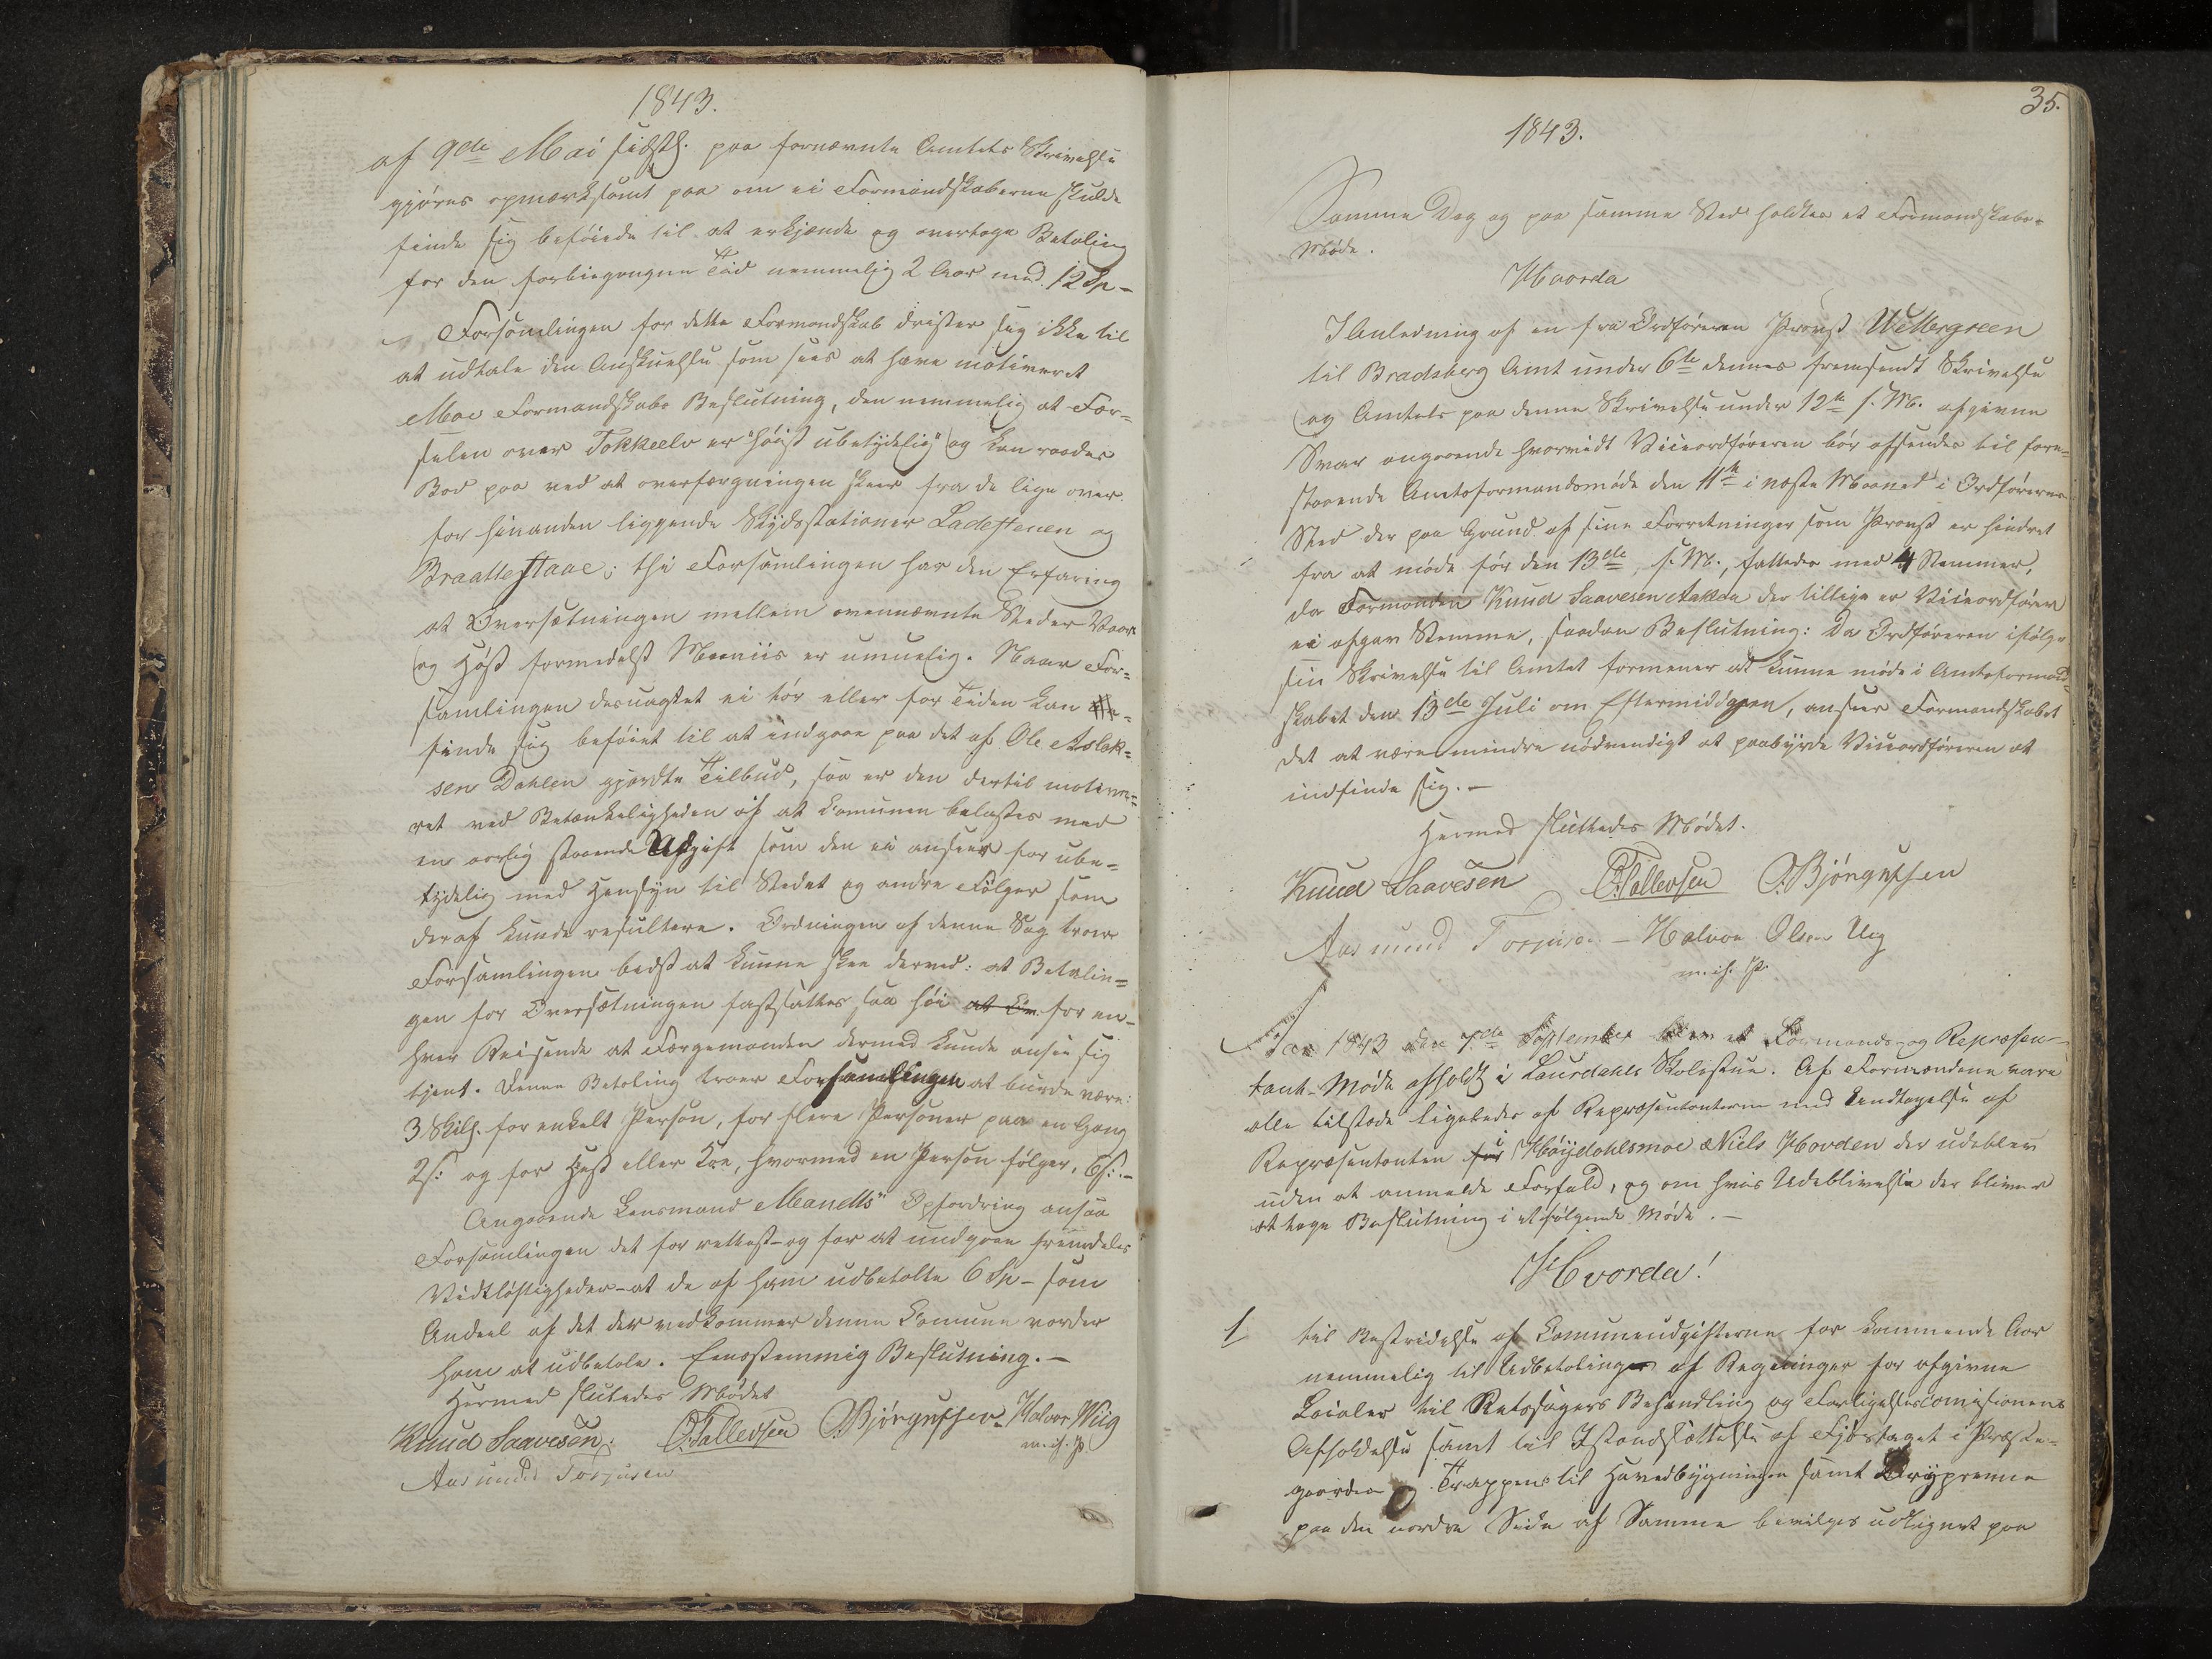 1843.
af 9de Mai sidstl. paa fornævnte Amtets Skrivelse
gjøres opmærksomt paa om ei Formandskaberne skulde
finde sig beføiede til at erkjende og overtage Betaling
for den forbigangne Tid nemmelig 2 Aar med 12 Sp-
Forsamlingen for dette Formandskab drister sig ikke til
at udtale den Anskuelse som sees at have motiveret
Moe Formandskabs Beslutning, den nemmelig at For-
selen over Tokkeelv er "høist ubetydelig" og kan raades
Bod paa ved at overfærgningen skeer fra de lige over
for hinanden liggende Skydsstationer Ladesteen og
Braattestaae; thi Forsamlingen har den Erfaring
at Oversætningen mellem ovennævnte Steder Vaar
og Høst formedelst Meeniis er umuelig. Naar For-
samlingen desuagtet ei tør eller for Tiden kan
finde sig beføiet til at indgaae paa det af Ole Aslak-
sen Dahlen gjordte Tilbud, saa er den dertil motive-
ret ved Betænkeligheden af at Comunen belastes med
en aarlig staaende Udgift som den ei ansees for ube-
tydelig med Hensyn til Stedet og andre Følger som
deraf kunde resultere. Ordningen af denne Sag troer
Forsamlingen bedst at kunne skee derved: at Betalin-
gen for Oversætningen fastsættes saa høi for en-
hver Reisende at Færgemanden dermed kunde ansee sig
tjent. Denne Betaling troer Forsamlingen at burde være:
3 Skill. for enkelt Person, for flere Personer paa en Gang
2 s: og for Hest eller Koe, hvormed en Person følger, 6 s:.-
Angaaende Lensmand Mandts Opfordring ansaa
Forsamlingen det for rettest- og for at undgaae fremdeles
Vidtløftigheder- at de af ham udbetalte 6 Sp- som
Andeel af det der vedkommer denne Comune vorder
ham at udbetale. Eenstemmig Beslutning.-
Hermed sluttedes Mødet
Knud Saavesen. O. Tallevsen O. Bjørgufsen Halvor Wiig
m. ih. P.
Aasmund Torjusen
35.
1843.
Samme Dag og paa samme Sted holdtes et Formandskabs-
Møde.
Hvorda
I Anledning af en fra Ordføreren Provst Wettergreen
til Bradsberg Amt under 6te dennes fremsendt Skrivelse
og Amtets paa denne Skrivelse under 12te s. M. afgivne
Svar angaaende hvorvidt Viceordføreren bør afsendes til fore-
staaende Amtsformandsmøde den 11te i næste Maaned i Ordførerens
Sted der paa Grund af sine Forretninger som Provst er hindret
fra at møde før den 13de s. M., fattedes med 4 Stemmer,
da Formanden Knud Saavesen Aakda der tillige er Viceordfører
ei afgav Stemme, saadan Beslutning: Da Ordføreren ifølge
sin Skrivelse til Amtet formener at kunne møde i Amtsformand-
skabet den 13de Juli om Eftermiddagen, anseer Formandskabet
det at være mindre nødvendigt at paabyrde Viceordføreren at
indfinde sig.-
Hermed sluttedes Mødet.
Knud Saavesen O. Tallevsen O. Bjørgufsen
Aasmund Torjusen - Halvor Olsen Uig
m. ih. P.
Aar 1843 den 7de September blev et Formands- og Repræsen-
tant-Møde afholdt i Laurdahls Skolestue. Af Formændene vare
alle tilstæde ligeledes af Repræsentanterne med Undtagelse af
Repræsentanten i Høijdahlsmoe Niels Hovden der udeblev
uden at anmelde Forfald, og om hvis Udeblivelse der bliver
at tage Beslutning i et følgende Møde.-
Hvorda!
1 til Bestridelse af Comuneudgifterne for kommende Aar
nemmelig til Udbetalinger af Regninger for afgivne
Localer til Retssagers Behandling og Forligelsescomissionens
Afholdelse samt til Istandsættelse af Fjøstaget i Præste-
gaarden og Trappen til Hovedbygningen samt Drypprenne
paa den nordre Side af Samme bevilges udlignet paa